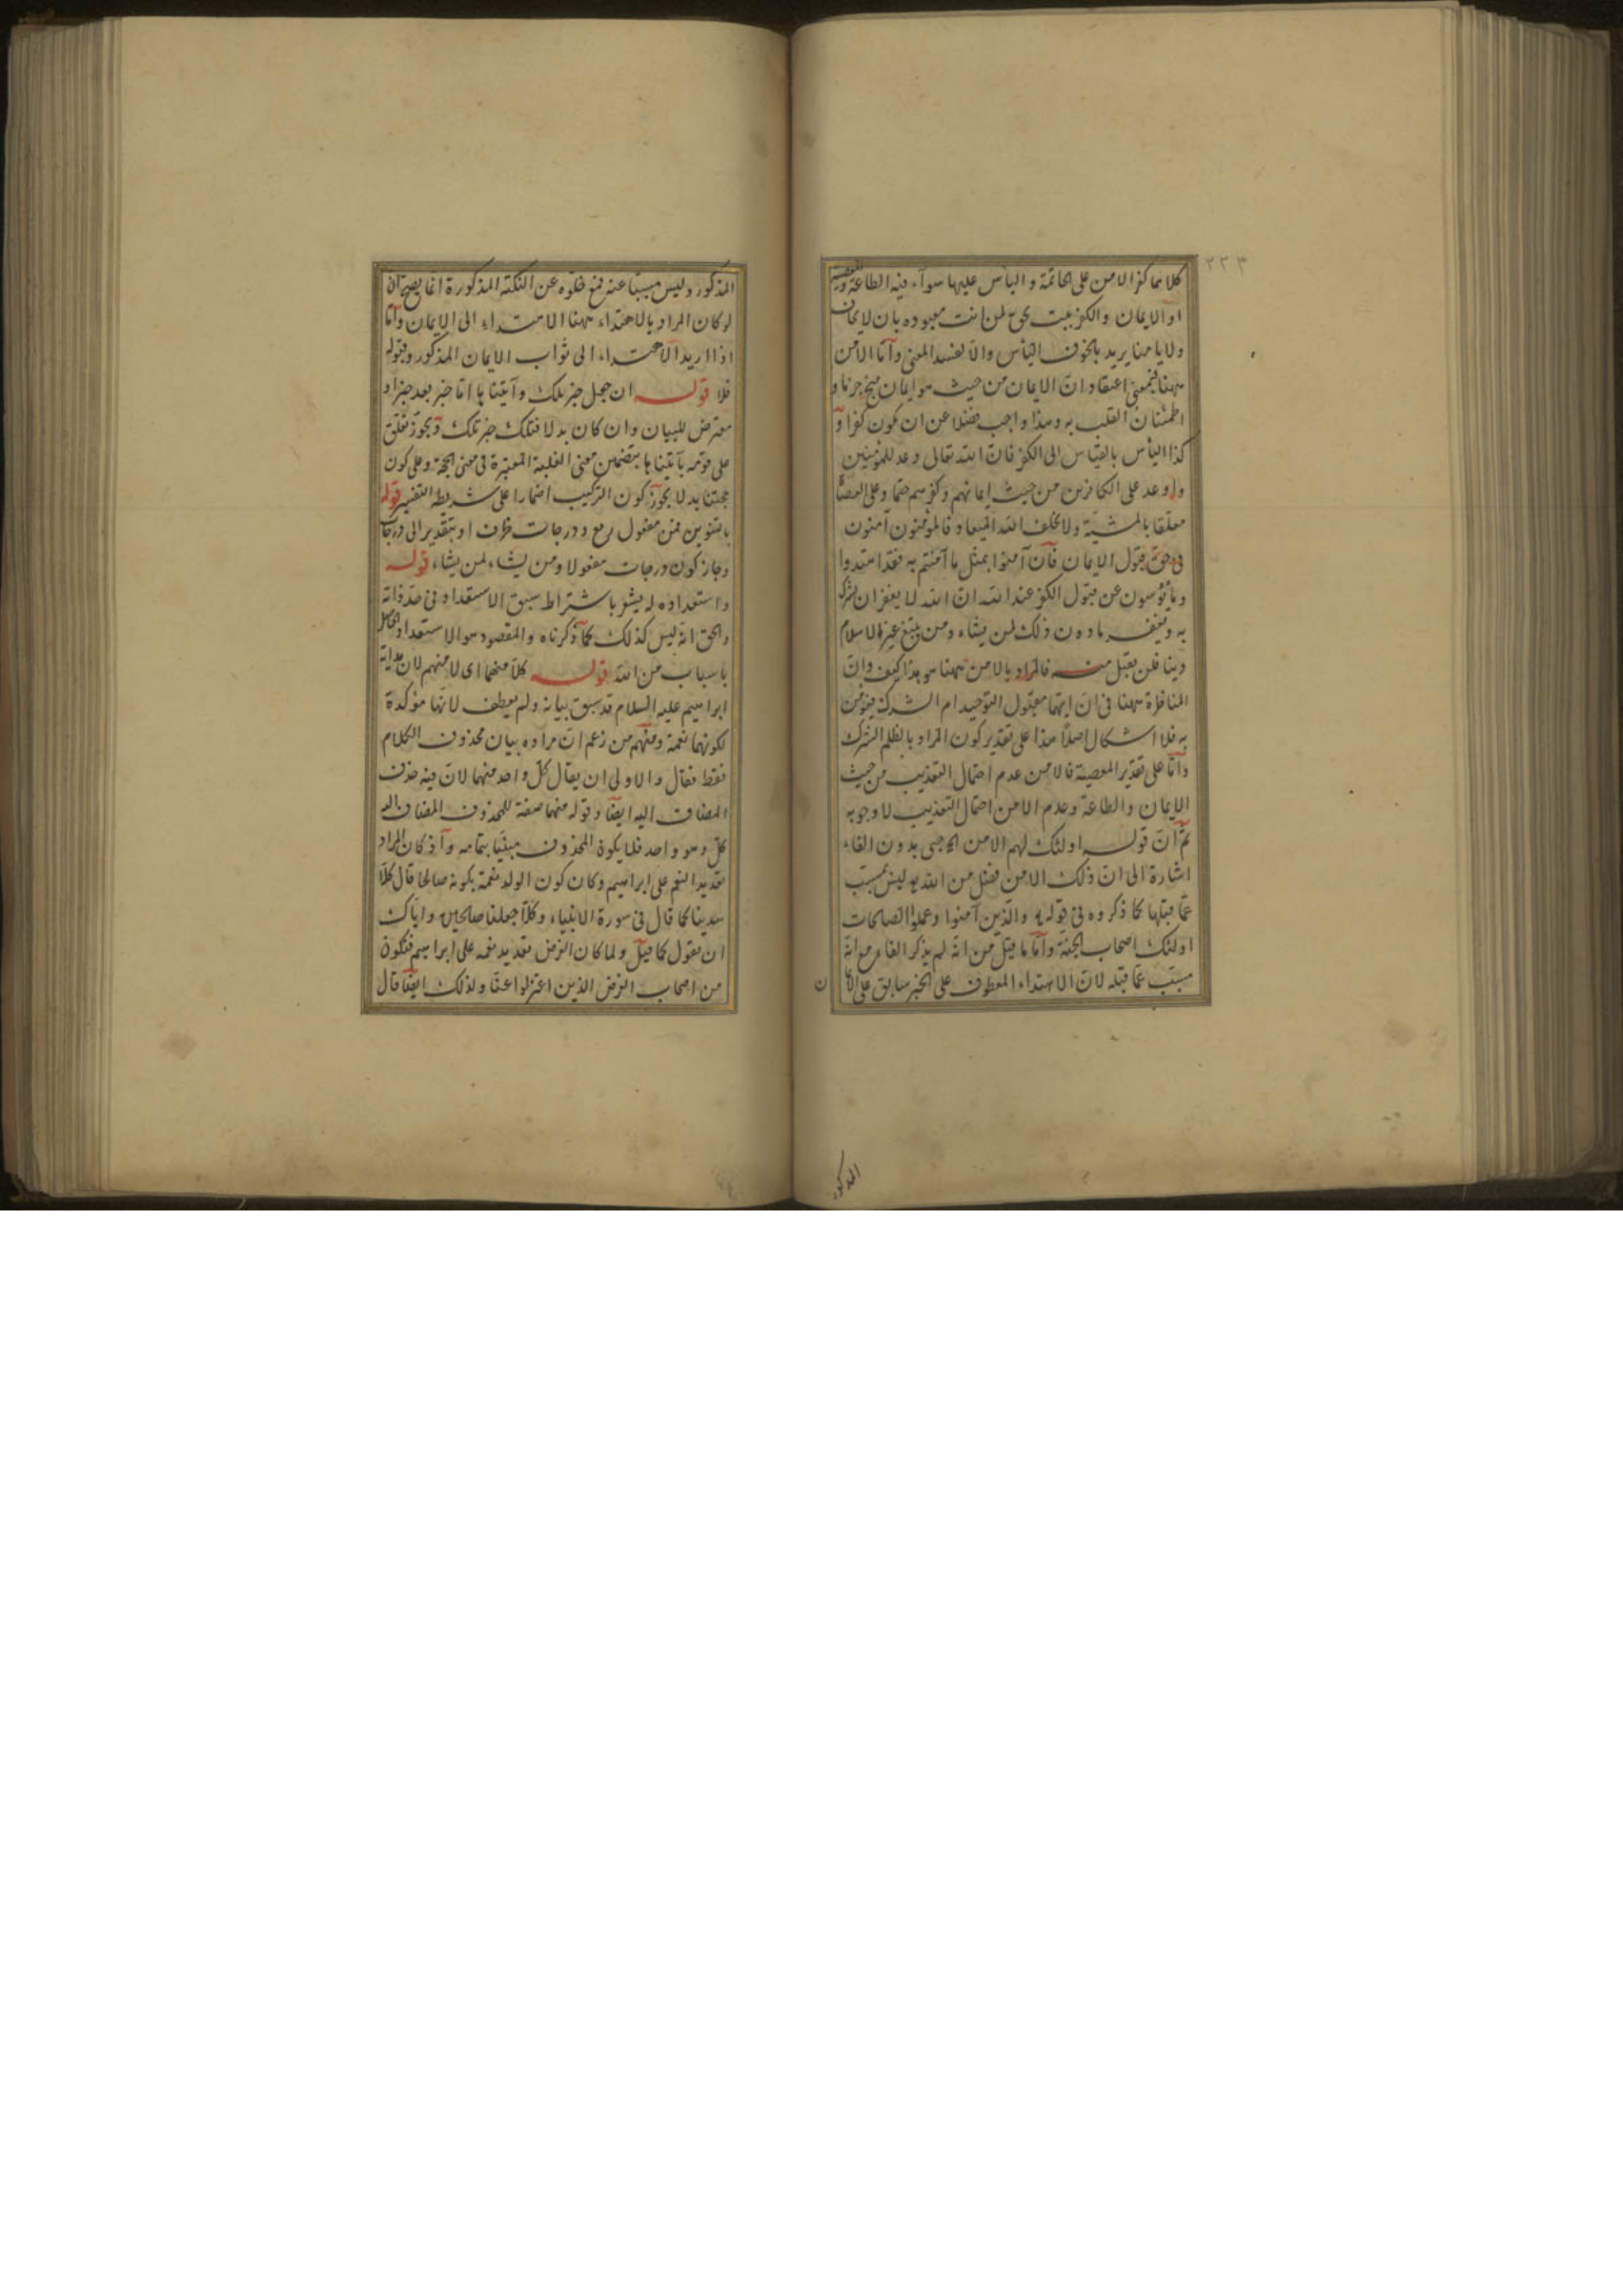 ٣٢٣
كلاهما كفر الامن على الخاتمة و الياس عليها سوآء فيه الطاعة والمعصية
او الايمان والكفر ولايامنا يريد بالخوف الياس والا لفسد المعنى وآما الامن
ههنا فبمعنى اعتقاد انّ الايمان من حيث هو ايمان
اطمئنان القلب به وهذا واجب فضلا عن ان يكون كفرا و
كذا الياس بالقياس الى الكفر فانّ الله تعالى وعد للمؤمنين
واوعد على الكافرين من حيث ايمانهم وكفرهم حتما وعلى العصاة
معلّقا بالمشيّة ولا يخلف الله الميعاد فالمؤمنون آمنون
فى حقّ قبول الايمان فان آمنوا بمثل ما آمنتم به فقد اهتدوا
ومأيوسون عن قبول الكفر عند الله انّ الله لا يغفر ان يشرك
به ويغفر ما دون ذلك لمن يشاء ومن يبتغ غير الاسلام
دينا فلن يقبل منه فالمراد بالامن ههنا هو هذا كيف وانّ
المناظرة ههنا فى انّ ايّهما مقبول التوحيد ام الشرك
به فلا اشكال اصلا هذا على تقدير كون المراد بالظلم الشرك
وآما على تقدير المعصية فالامن عدم احتمال التعذيب من حيث
الايمان والطاعة وعدم الامن احتمال التعذيب لا وجوبه
ثمّ انّ قوله اولئك لهم الامن بدون الفاء
اشارة الى انّ ذلك الامن فضل من الله وليس بمسبّب
عمّا قبلها كما ذكروه فى قوله والذين آمنوا وعملوا الصالحات
اولئك اصحاب الجنة وآما ما قيل من انه لم يذكر الفاء مع انه
مسبّب عمّا قبله لانّ الاهتداء المعطوف على الخبر سابق على الايمان
المذكور
المذكور وليس مسببا عنه فمع خلوّه عن النكتة المذكورة انما يصح ان
لو كان المراد بالاهتداء ههنا الاهتداء الى الايمان وآما
اذا اريد الاهتداء الى ثواب الايمان المذكور وقبوله
فلا قوله ان جعل خبر تلك وآتيناها اما خبر بعد خبر او
معترض للبيان وان كان بدلا فتلك خبر تلك ويجوز تعلّق
على قومه بآتيناها بتضمين معنى الغلبة المعتبرة فى معنى الحجة وعلى كون
حجتنا بدلا يجوز كون التركيب اضمارا على شريطة التفسير قوله
بالتنوين فمن مفعول نرفع ودرجات ظرف او بتقدير الى درجات
وجاز كون درجات مفعولا ومن يشاء لمن يشاء قوله
واستعداده له يشعر باشتراط سبق الاستعداد فى حدّ ذاته
والحق انه ليس كذلك كما ذكرناه والمقصود هو الاستعداد الحاصل
باسباب من الله قوله كلا منهما اى لا منهم لان هداية
ابراهيم عليه السلام قد سبق بيانه ولم يعطف لانها مؤكدة
لكونهما نعمة ومنهم من زعم انّ مراده بيان محذوف الكلام
فقط فقال والاولى ان يقال كلّ واحد منهما لانّ فيه حذف
المضاف اليه ايضا وقوله منهما صفة للمحذوف المضاف اليه
كلّ وهو واحد فلا يكون المحذوف مبيّنا بتمامه وآذ كان المراد
تعديد النعم على ابراهيم وكان كون الولد نعمة بكونه صالحا قال كلّا
هدينا كما قال فى سورة الانبياء وكلا جعلنا صالحين واياك
ان تقول كما قيل ولما كان الغرض تعديد نعمه على ابراهيم فتكون
من اصحاب الغرض الذين اعتزلوا عنّا ولذلك ايضا قال